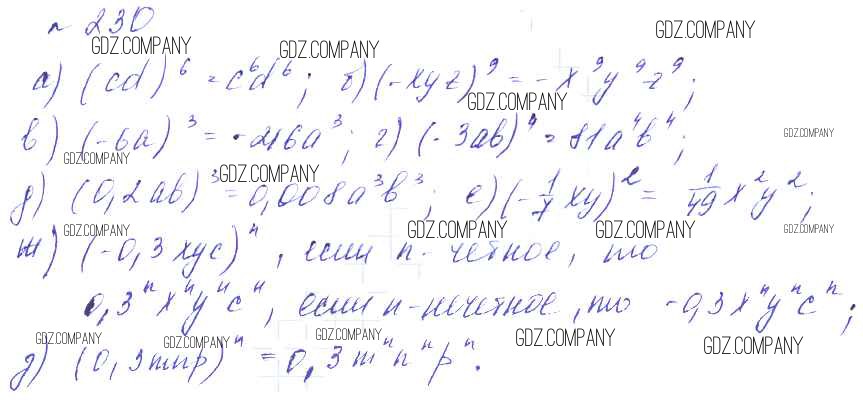 № 230
GDZ.COMPANY GDZ.COMPANY GDZ.COMPANY
а) (cd)⁶ = c⁶d⁶; б) (-xyz)⁹ = -x⁹y⁹z⁹;
GDZ.COMPANY
в) (-6a)³ = -216a³; г) (-3ab)⁴ = 81a⁴b⁴;
GDZ.COMPANY GDZ.COMPANY GDZ.COMPANY
д) (0,2ab)³ = 0,008a³b³; е) (-1/7 xy)² = 1/49 x²y²;
GDZ.COMPANY GDZ.COMPANY GDZ.COMPANY GDZ.COMPANY
ж) (-0,3xyc)ⁿ, если n - четное, то
0,3ⁿxⁿyⁿcⁿ, если n - нечетное, то -0,3xⁿyⁿcⁿ;
GDZ.COMPANY GDZ.COMPANY GDZ.COMPANY GDZ.COMPANY GDZ.COMPANY
д) (0,3mnp)ⁿ = 0,3mⁿnⁿpⁿ.